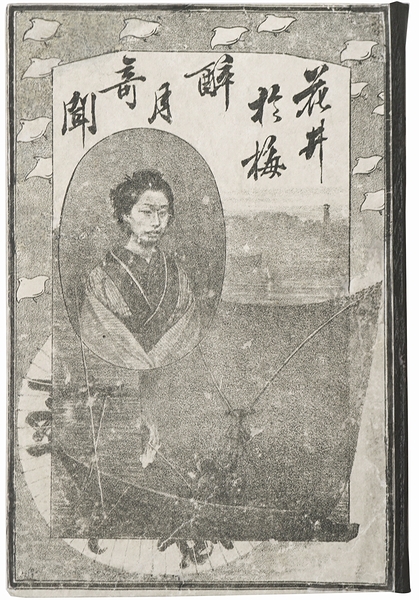 花井
於梅
醉月奇聞